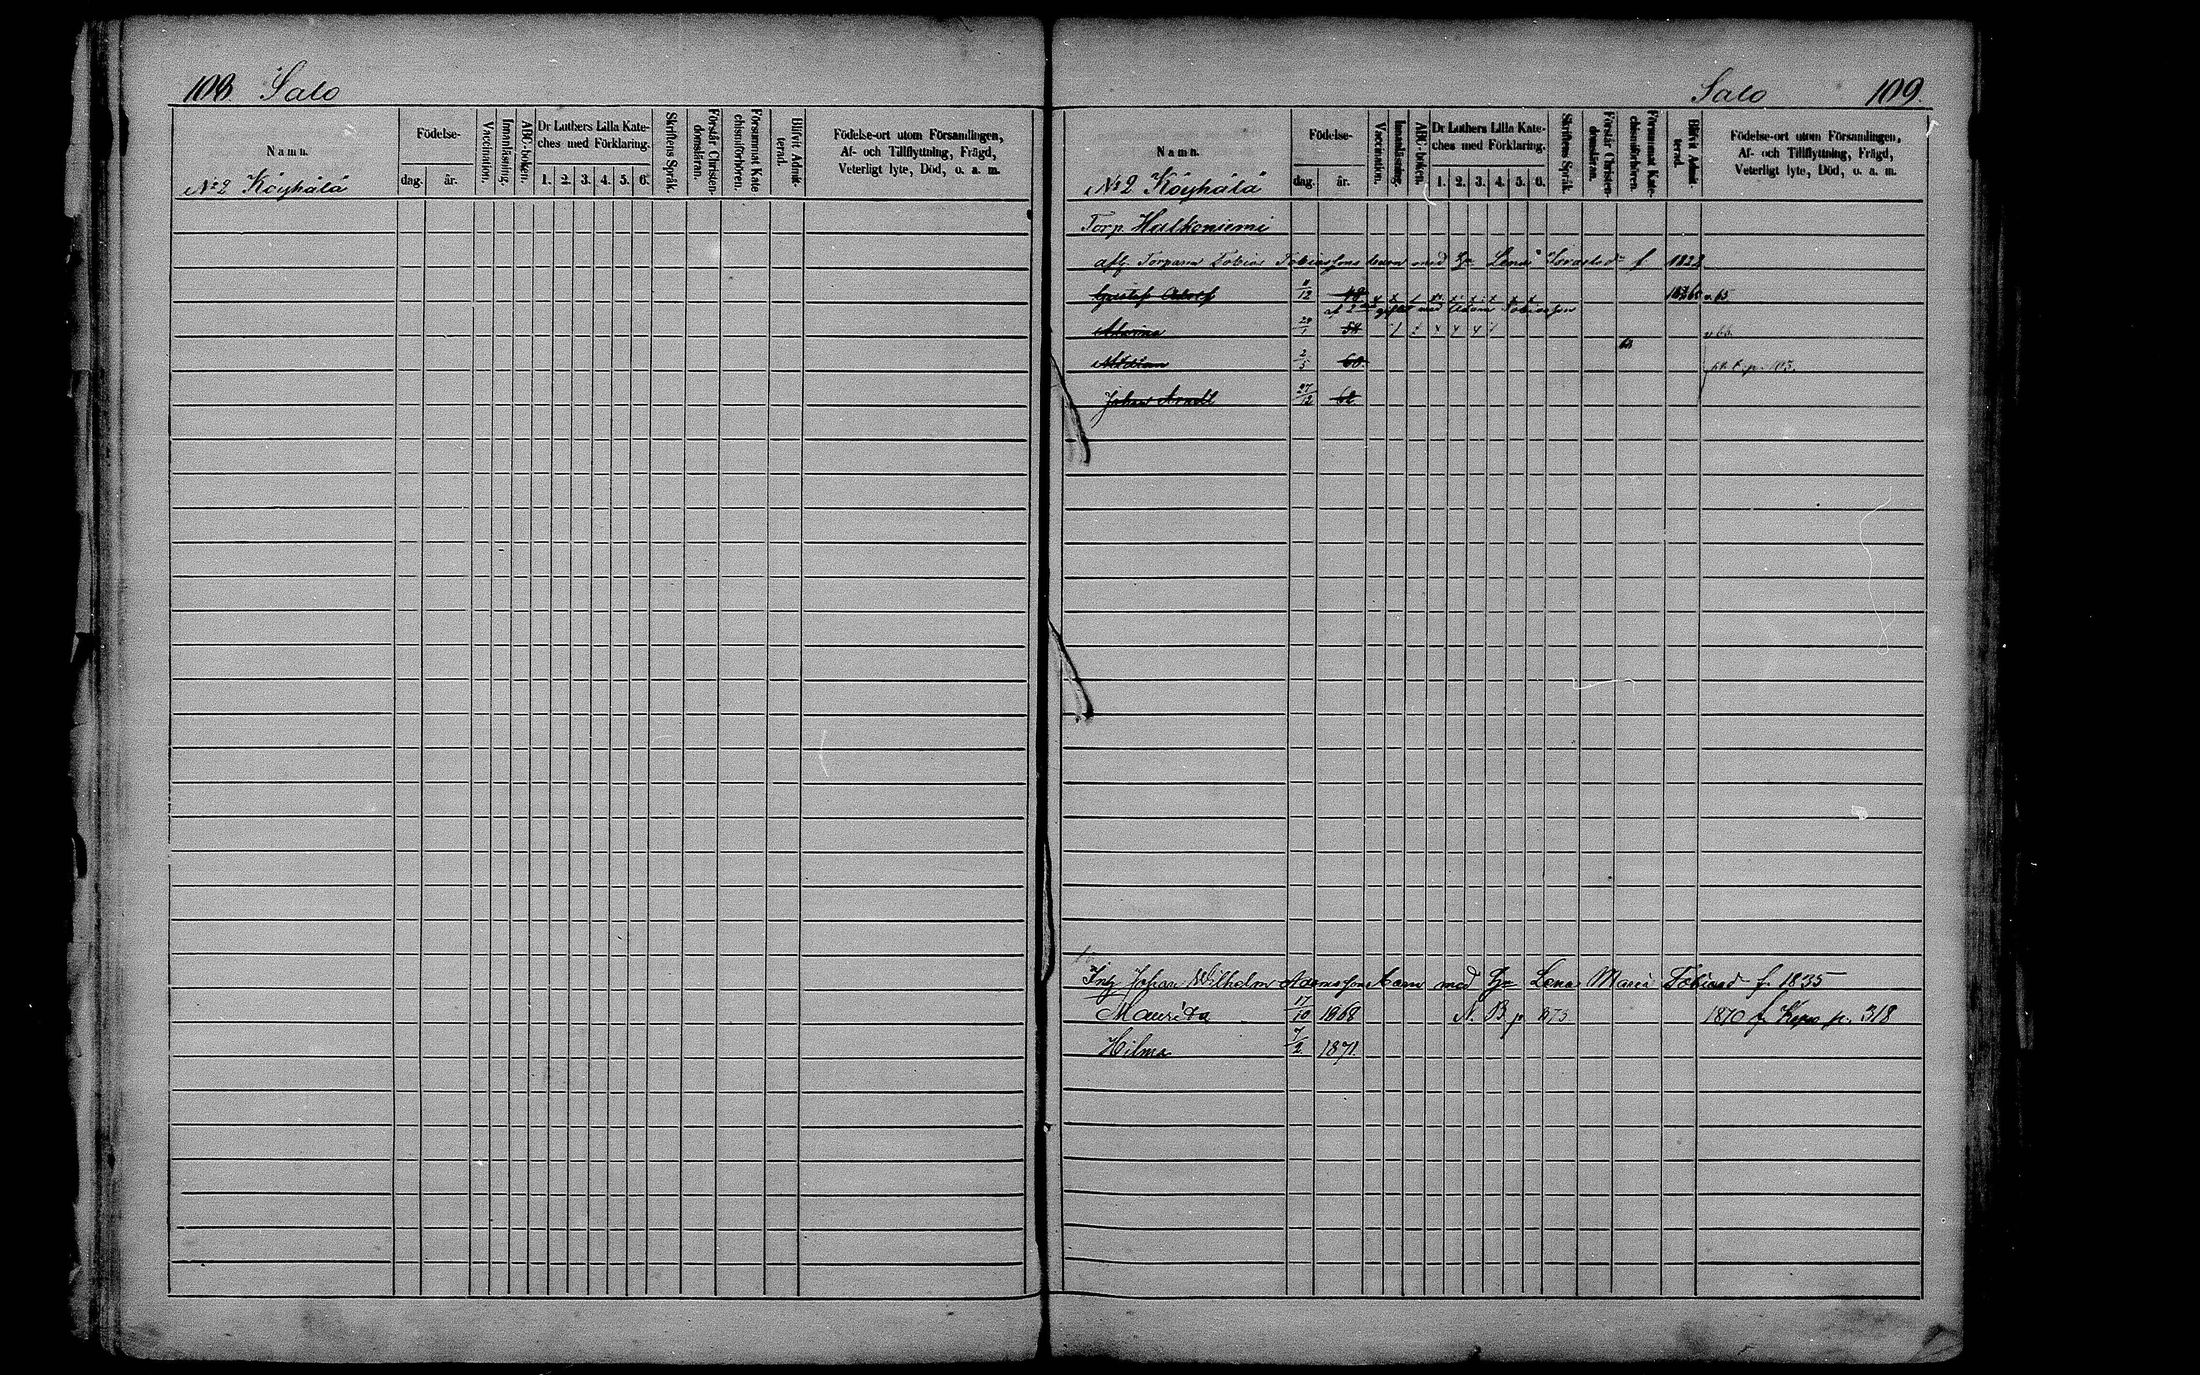 108. Salo
Namn.
Födelse-
dag. år.
Vaccination.
Innanläsning.
ABC-boken.
Dr Luthers Lilla Kate-
ches med Förklaring.
1. 2. 3. 4. 5. 6.
Skriftens Språk.
Förstår Christen-
domsläran.
Försummat Kate
chismiförhören.
Blifvit Admit-
terad.
Födelse-ort utom Församlingen,
Af- och Tillflyttning, Frägd,
Veterligt lyte, Död, o. a. m.
No 2 Köyhälä
Salo 109.
Namn.
Födelse-
dag. år.
Vaccination.
Innanläsning.
ABC-boken.
Dr Luthers Lilla Kate-
ches med Förklaring.
1. 2. 3. 4. 5. 6.
Skriftens Språk
Förstår Christen-
domsläran.
Försummat Kate-
chismiförhören.
Blifvit Admit
terad.
Födelse-ort utom Församlingen,
Af- och Tillflyttning, Frägd,
Veterligt lyte, Död, o. a. m.
No 2 Köyhälä
Torp. Halkoniemi
afl. Torparen Tobias Tobiassons barn med Lena f 1828
Gustaf Adolf /12 48
af 2 giftet med Adam Tobiasson
54
2/5 60
Johan 27/12 62
Inh Johan Wilhelm Adamsson barn med Hu Lena Maria Tobiasd f. 1835
Maurits 17/10 1868 N. B p. 1870 p. 318
Hilma 7/2 1871